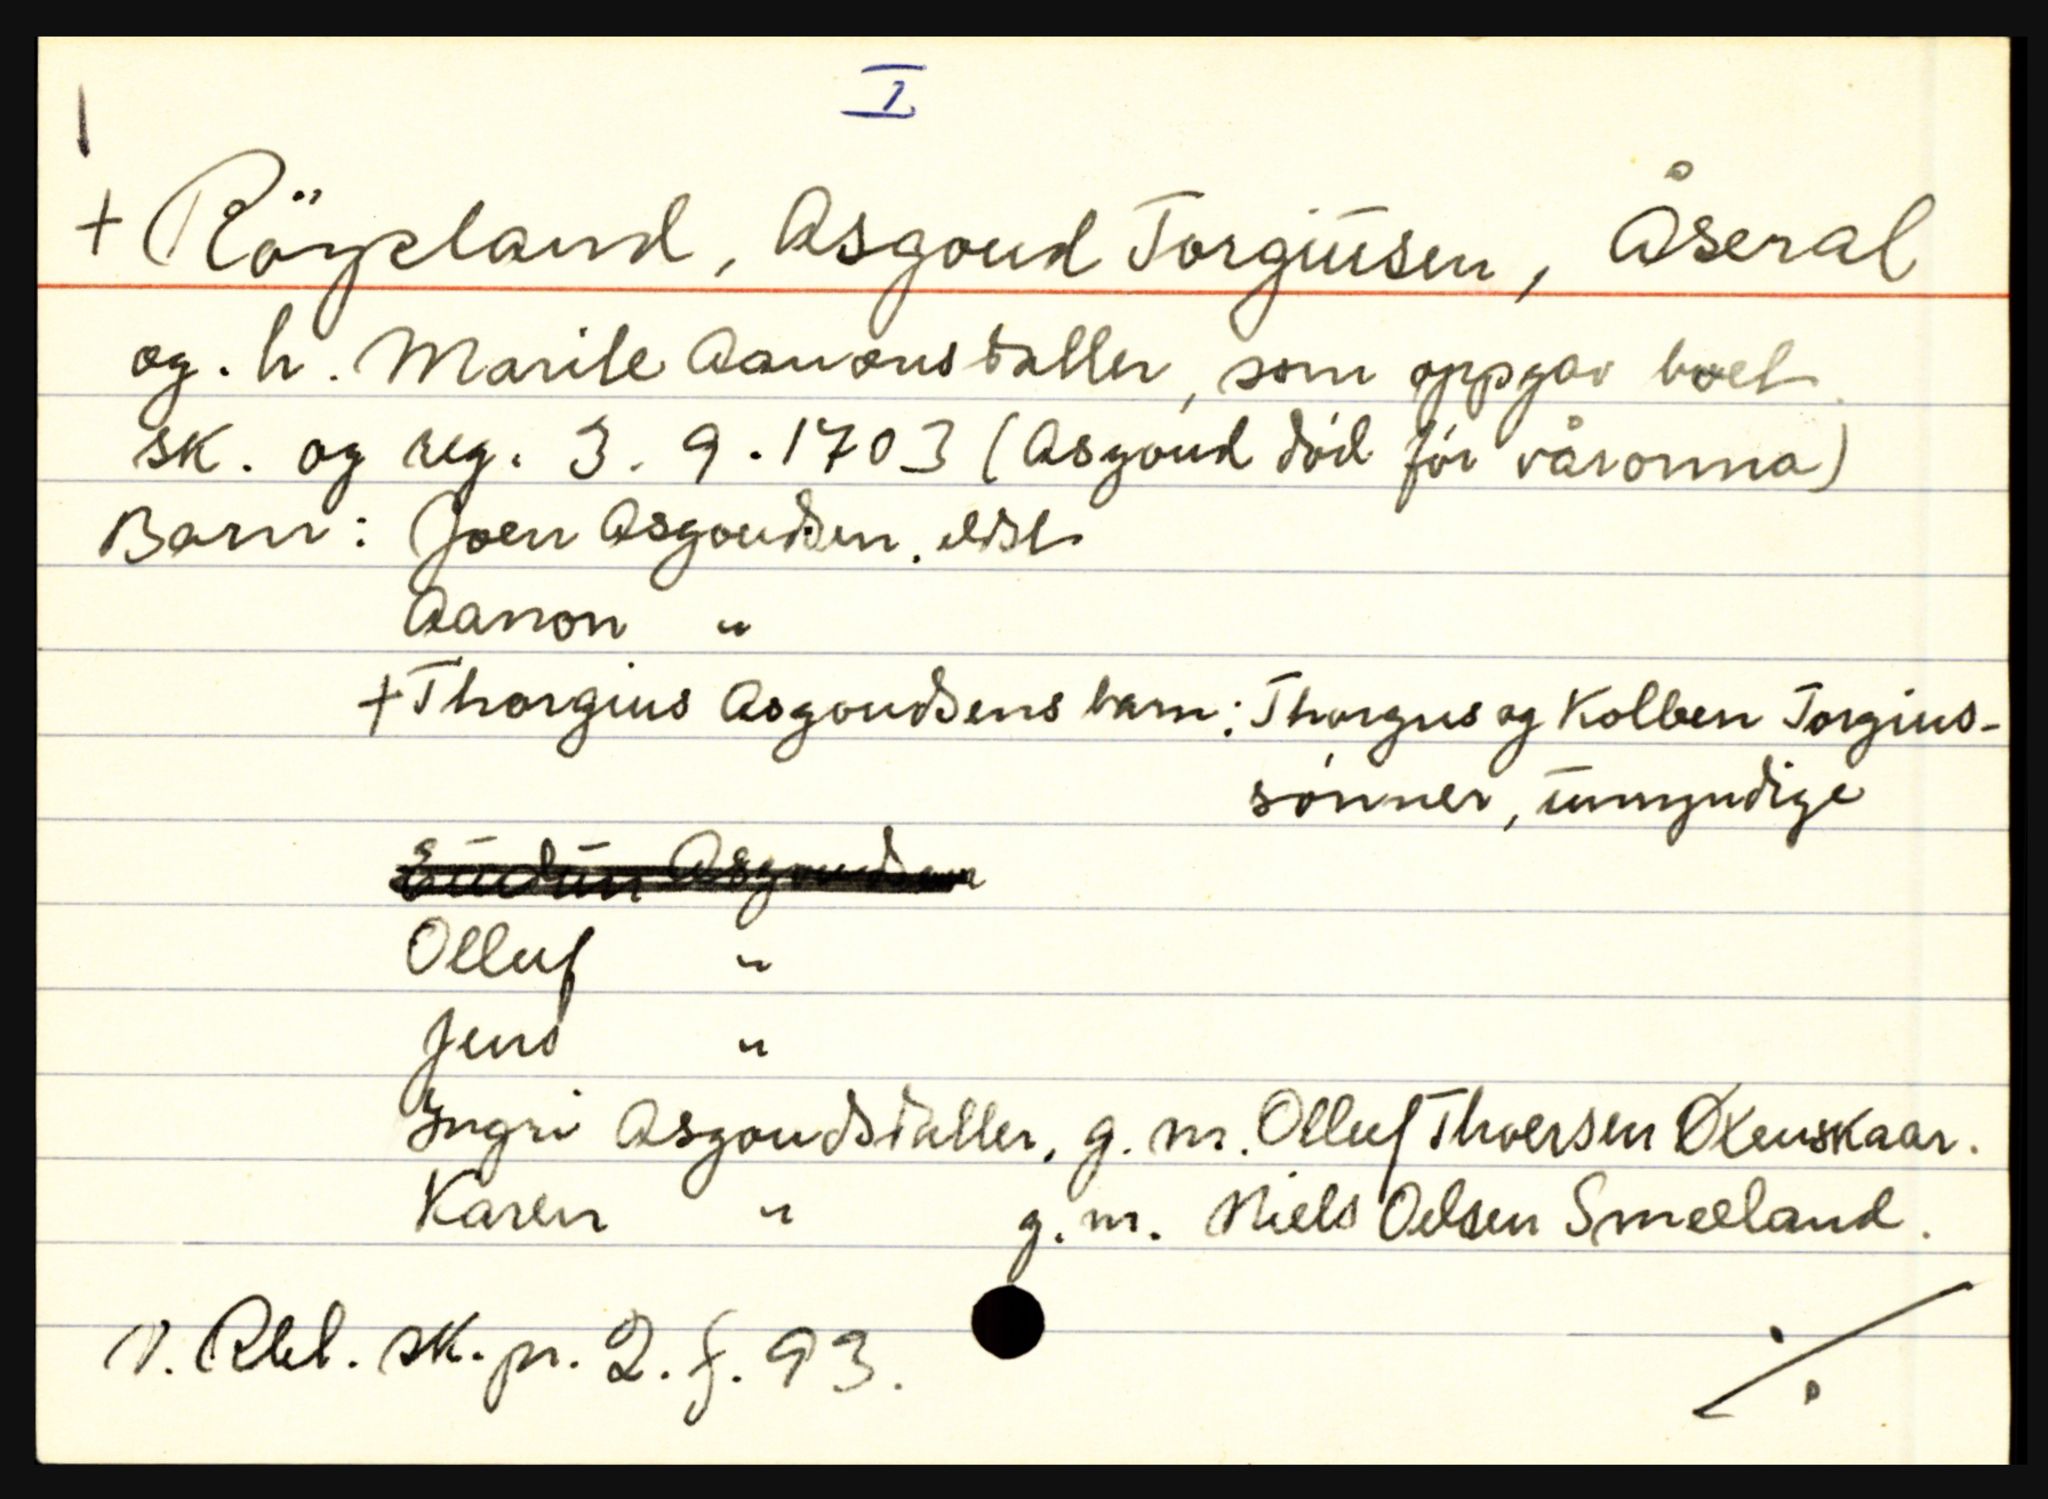 I
+ Röyseland, Asgoud Torgiusen, Åseral
og. h. Marite Aanonsdatter, som oppgav boet.
sk. og reg. 3. 9. 1703 (Asgoud död för våronna)
Barn: Joen Asgoudsen. eldst
Aanon "
+ Thorgius Asgoudsens barn: Thorgus og Kolben Torgius-
sønner, umyndige
Olluf "
Jens "
Ingri Asgoudsdatter, g. m. Olluf Thoersen Øxenskaar.
Karen " g. m. Niels Oelsen Smeeland.
V. Rbl. sk. pr. 2. f. 93.
./.